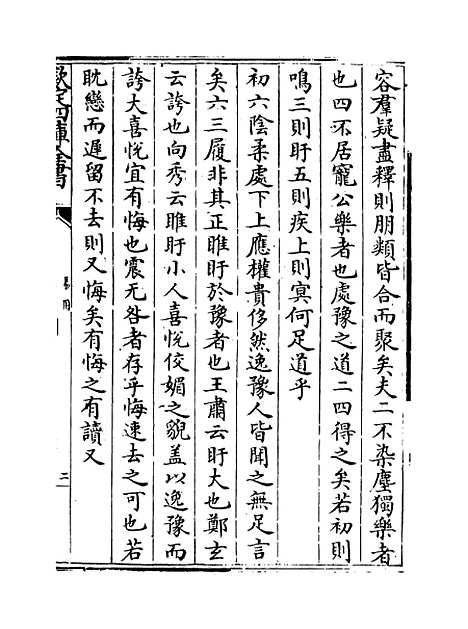 容羣疑盡釋則朋類皆合而聚矣夫二不染塵獨樂者
也四不居寵公樂者也處豫之道二四得之矣若初則
鳴三則盱五則疾上則冥何足道乎
初六陰柔處下上應權貴侈然逸豫人皆聞之無足言
矣六三履非其正睢盱於豫者也王肅云盱大也鄭玄
云誇也向秀云睢盱小人喜恱佼媚之貌盖以逸豫而
誇大喜恱宜有悔也震无咎者存乎悔速去之可也若
耽戀而遲留不去則又悔矣有悔之有讀又
欽定四庫全書
易用
三